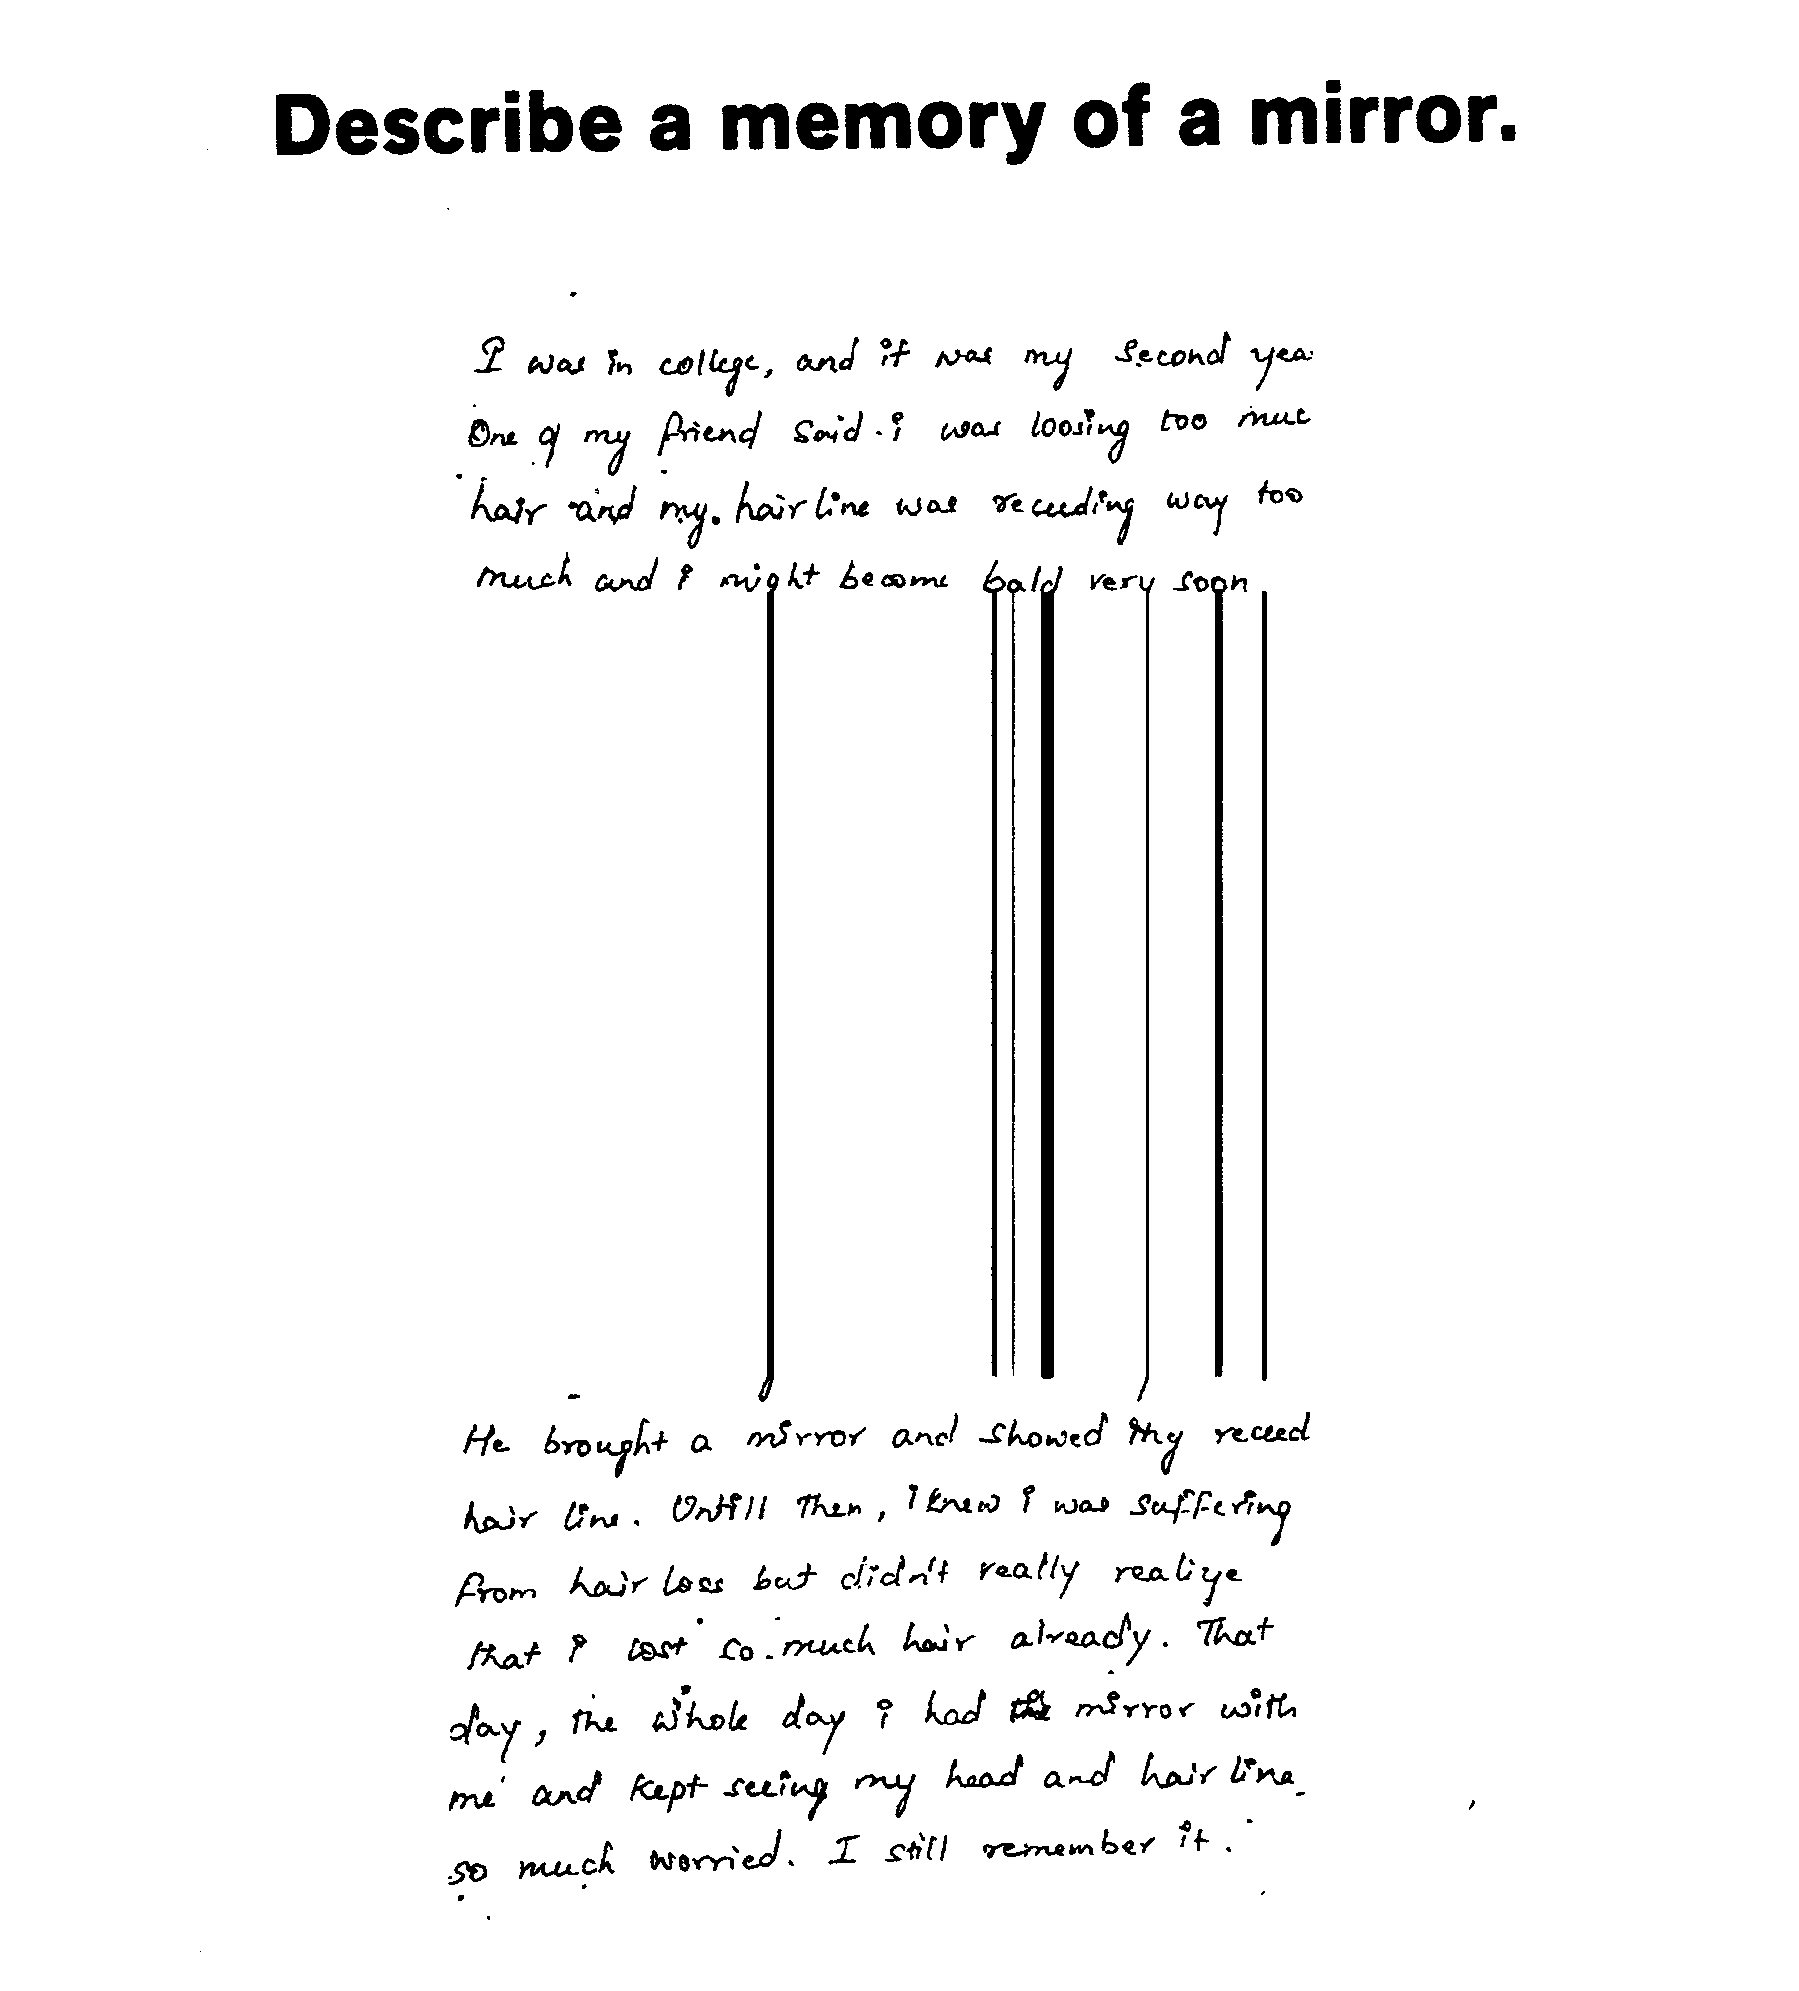 Describe a memory of a mirror.
I was in college, and it was my second yea
One of my friend said i was loosing too muc
hair and my hair line was receeding way too
much and i might become bald very soon
He brought a mirror and showed my receed
hair line. Untill then, i knew i was suffering
from hair loss but didn't really realize
that i lost so much hair already. That
day, the whole day i had the mirror with
me and kept seeing my head and hair line
so much worried. I still remember it.